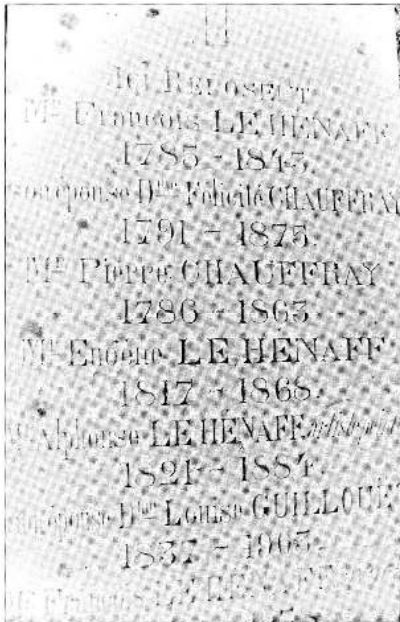 ICI REPOSENT
Mr François LE HENAFF
1785 - 1843.
son épouse Dme Félicité CHAUFFRAY
1791 - 1875.
Mr Pierre CHAUFFRAY
1786 - 1863.
Mr Eugène LE HENAFF
1817 - 1868.
Mr Alphonse LE HÉNAFF artiste peint
1821 - 1884.
son épouse Dme Louise GUILLOUËT
1837 - 1903.
Mr François